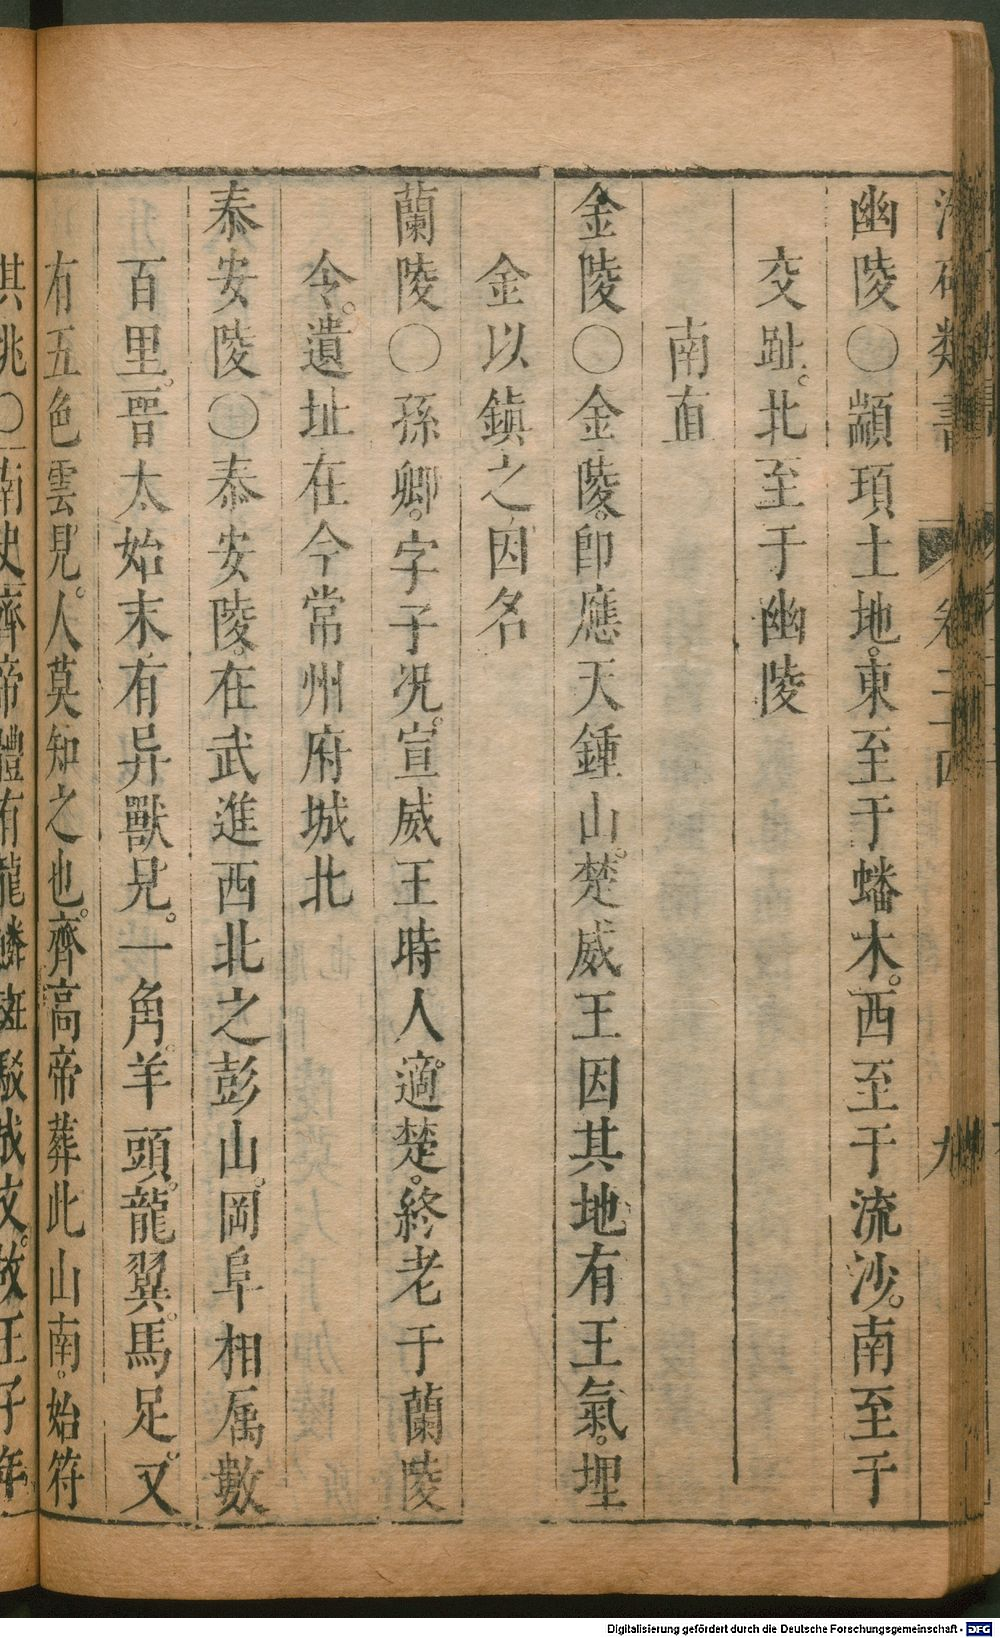 類書 卷二四 九
幽陵〇顓頊土地。東至于蟠木。西至于流沙。南至于
交趾。北至于幽陵
南直
金陵〇金陵。卽應天鍾山。楚威王因其地有王氣。埋
金以鎮之因名
蘭陵〇孫卿。字子况。宣威王時人。適楚。終老于蘭陵
令。遺址在今常州府城北
泰安陵〇泰安陵。在武進西北之彭山。岡阜相属數
百里。晉太始末有异獸見。一角。羊頭。龍翼。馬足。又
有五色雲見。人莫知之也。齊高帝葬此山南。始符
其兆〇南史齊帝體有龍鱗斑駁成文。故王子年
Digitalisierung gefördert durch die Deutsche Forschungsgemeinschaft - DFG